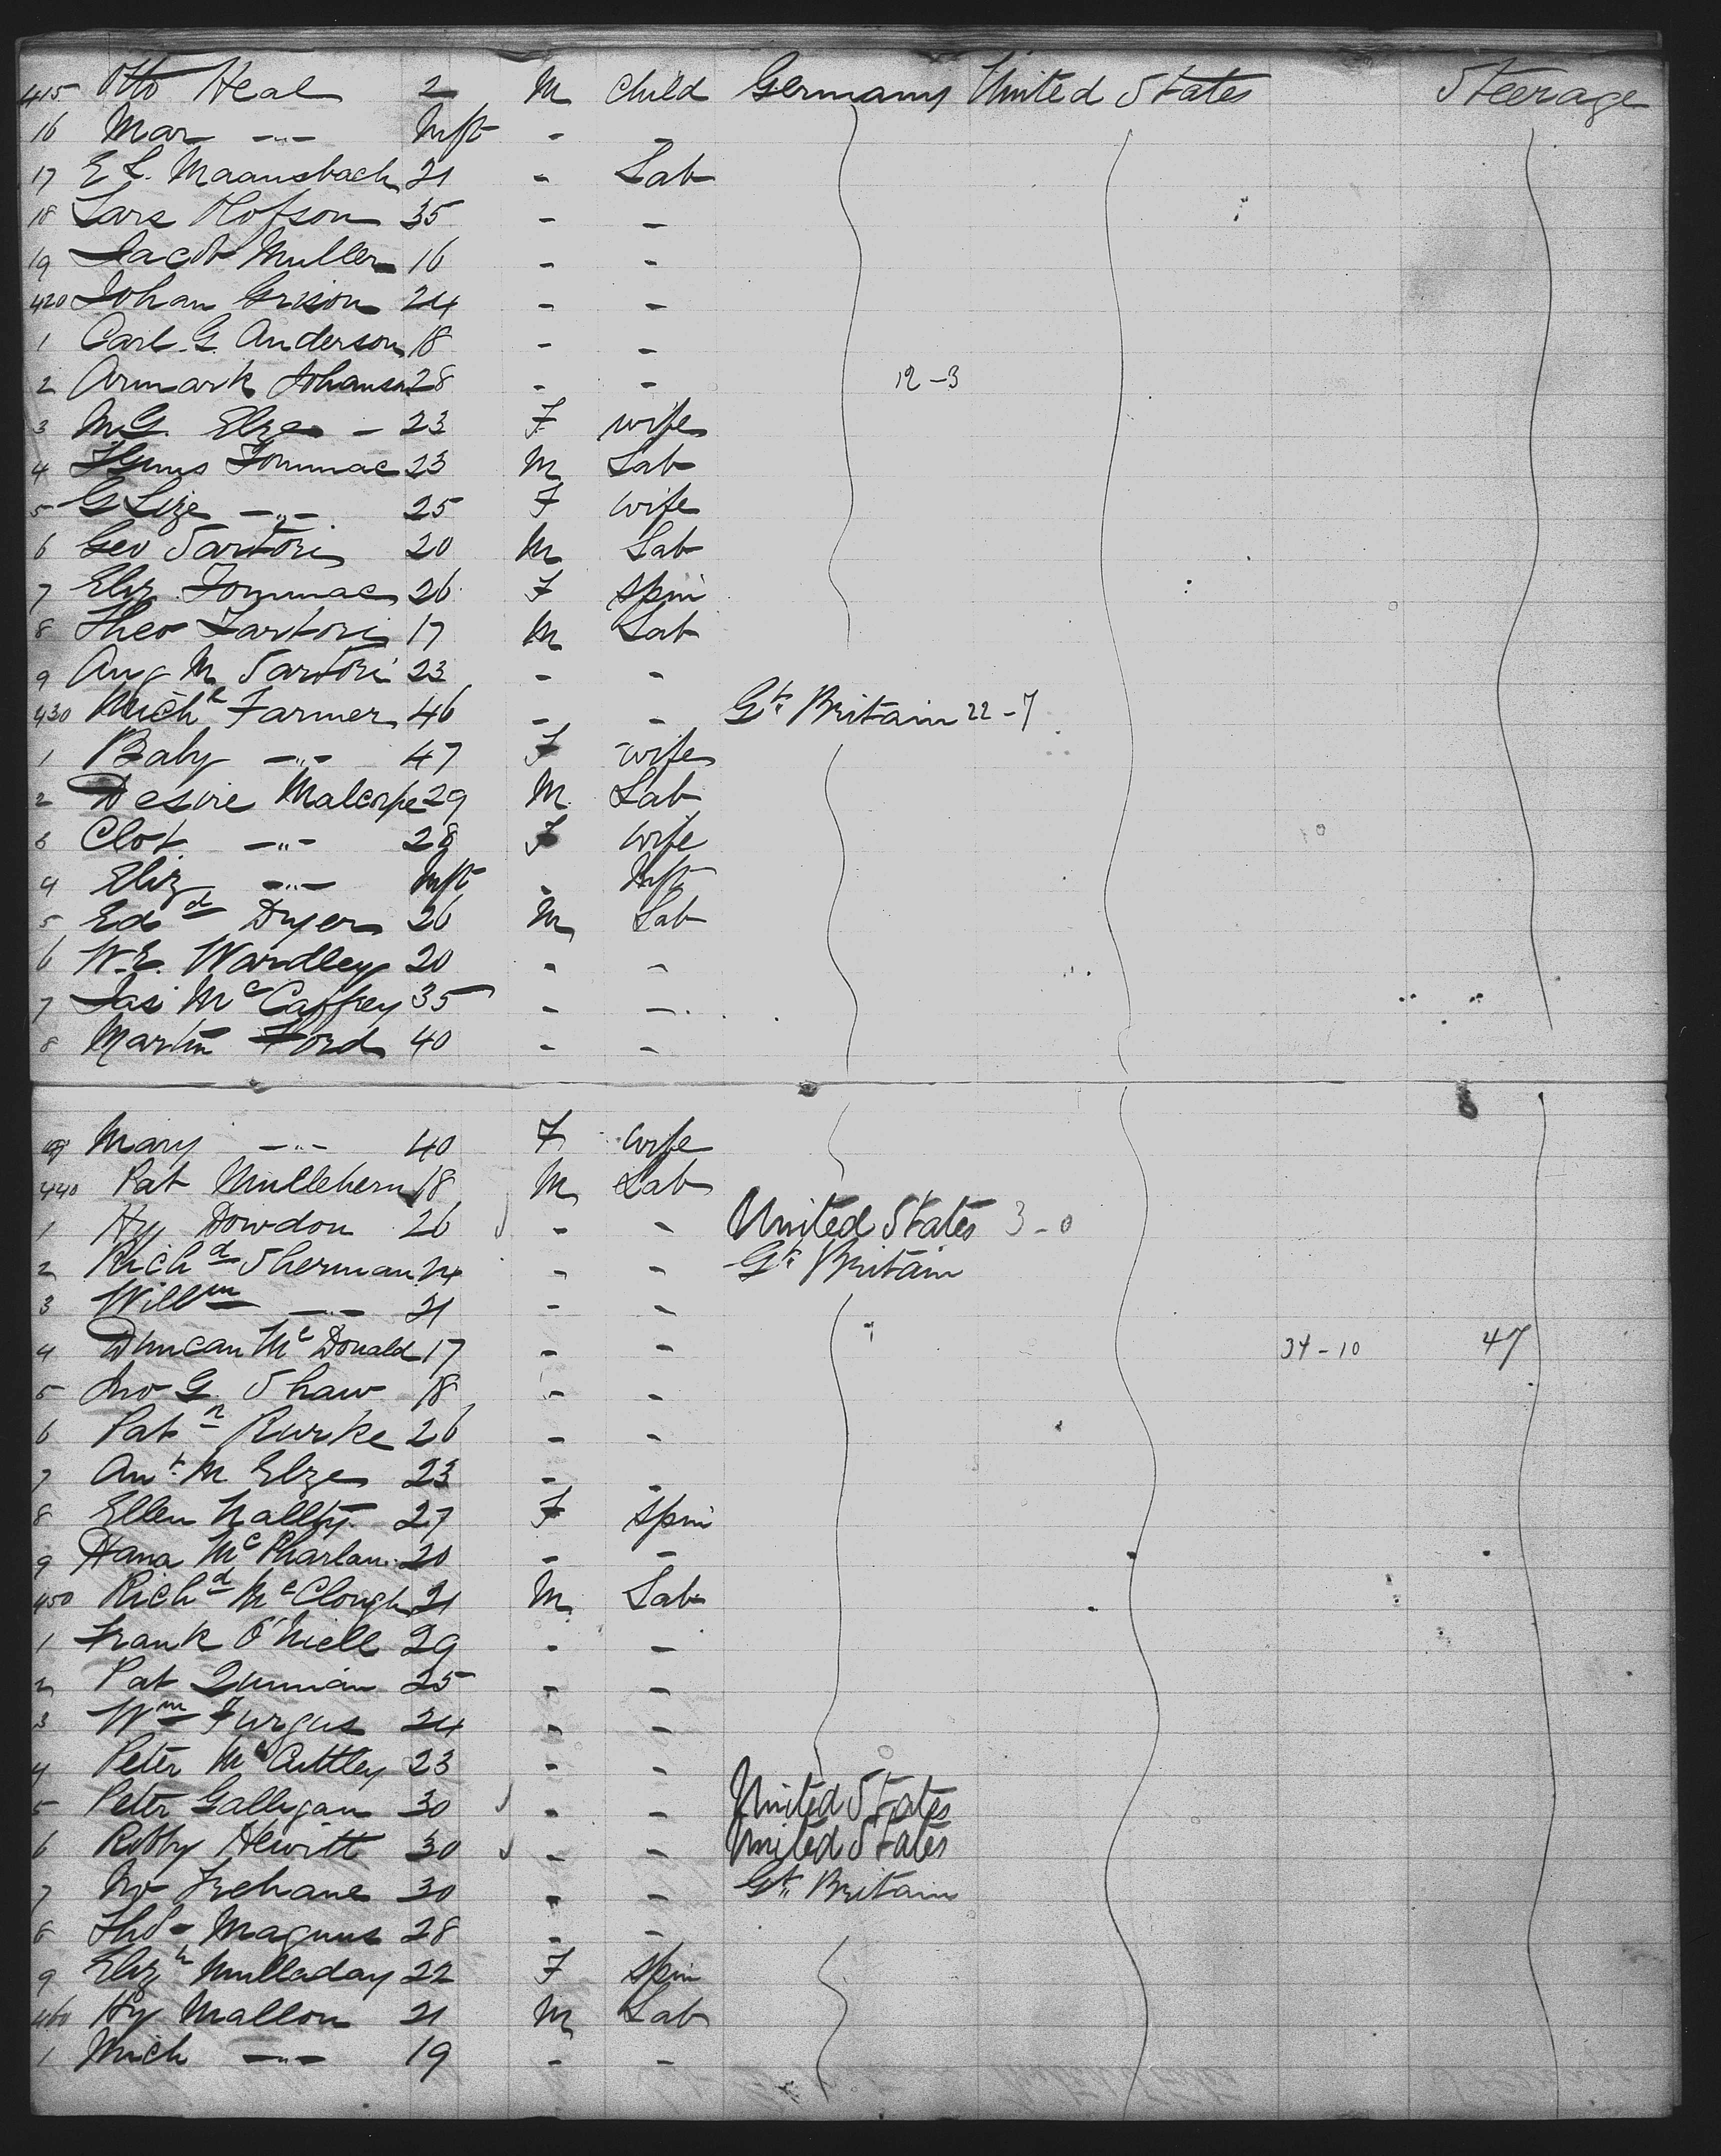 415 Otto Heal 2 M Child Germany United States Steerage
16 Mar -"- Inft - -
17 E L. Maansbach 21 - Lab
18 Lars Olofson 35 - -
19 Jacob Muller 16 - -
420 Johan Grison 24 - -
1 Carl G. Anderson 18 - -
2 Armark Johansn 28 - - 12-3
3 M.G. Elze - 23 F wife
4 Tommac 23 M Lab
5 G Lize -"- 25 F wife
6 Geo Sartori 20 M Lab
7 Eliz Tommac 26 F Spin
8 Theo Sartori 17 M Lab
9 Aug M. Sartori 23 - -
430 Michl Farmer 46 - - Gt. Britain 22-7
1 Baby -"- 47 F wife
2 Desire Malcorpe 29 M Lab
3 Clot. -"- 28 F wife
4 Eliz -"- Inft - Inft
5 Edd Dyer 26 M Lab
6 W.E. Wardley 20 - -
7 Jas McCaffrey 35 - -
8 Martin Ford 40 - -
9 Mary -"- 40 F wife
440 Pat Mullehern 18 M Lab
1 Hy Dowdon 26 - - United States 3-0
2 Richd Sherman 24 - - Gt. Britain
3 Willm -"- 21 - -
4 Duncan McDonald 17 - - 34-10 47
5 Jno G. Shaw 18 - -
6 Patn Rurke 26 - -
7 Ant. M Elze 23 - -
8 Ellen Nallty 27 F Spin
9 Hana McPharlan 20 - -
450 Richd McClough 21 M Lab
1 Frank O'Niell 29 - -
2 Pat Quinnian 25 - -
3 Wm Furgus 24 - -
4 Peter McCuttley 23 - -
5 Peter Galligan 30 - - United States
6 Robby Hewitt 30 - - United States
7 Jno Trehane 30 - - Gt. Britain
8 Thos Magnus 28 - -
9 Elizh Mulladay 22 F Spin
460 Hy Mallon 21 M Lab
1 Mich -"- 19 - -